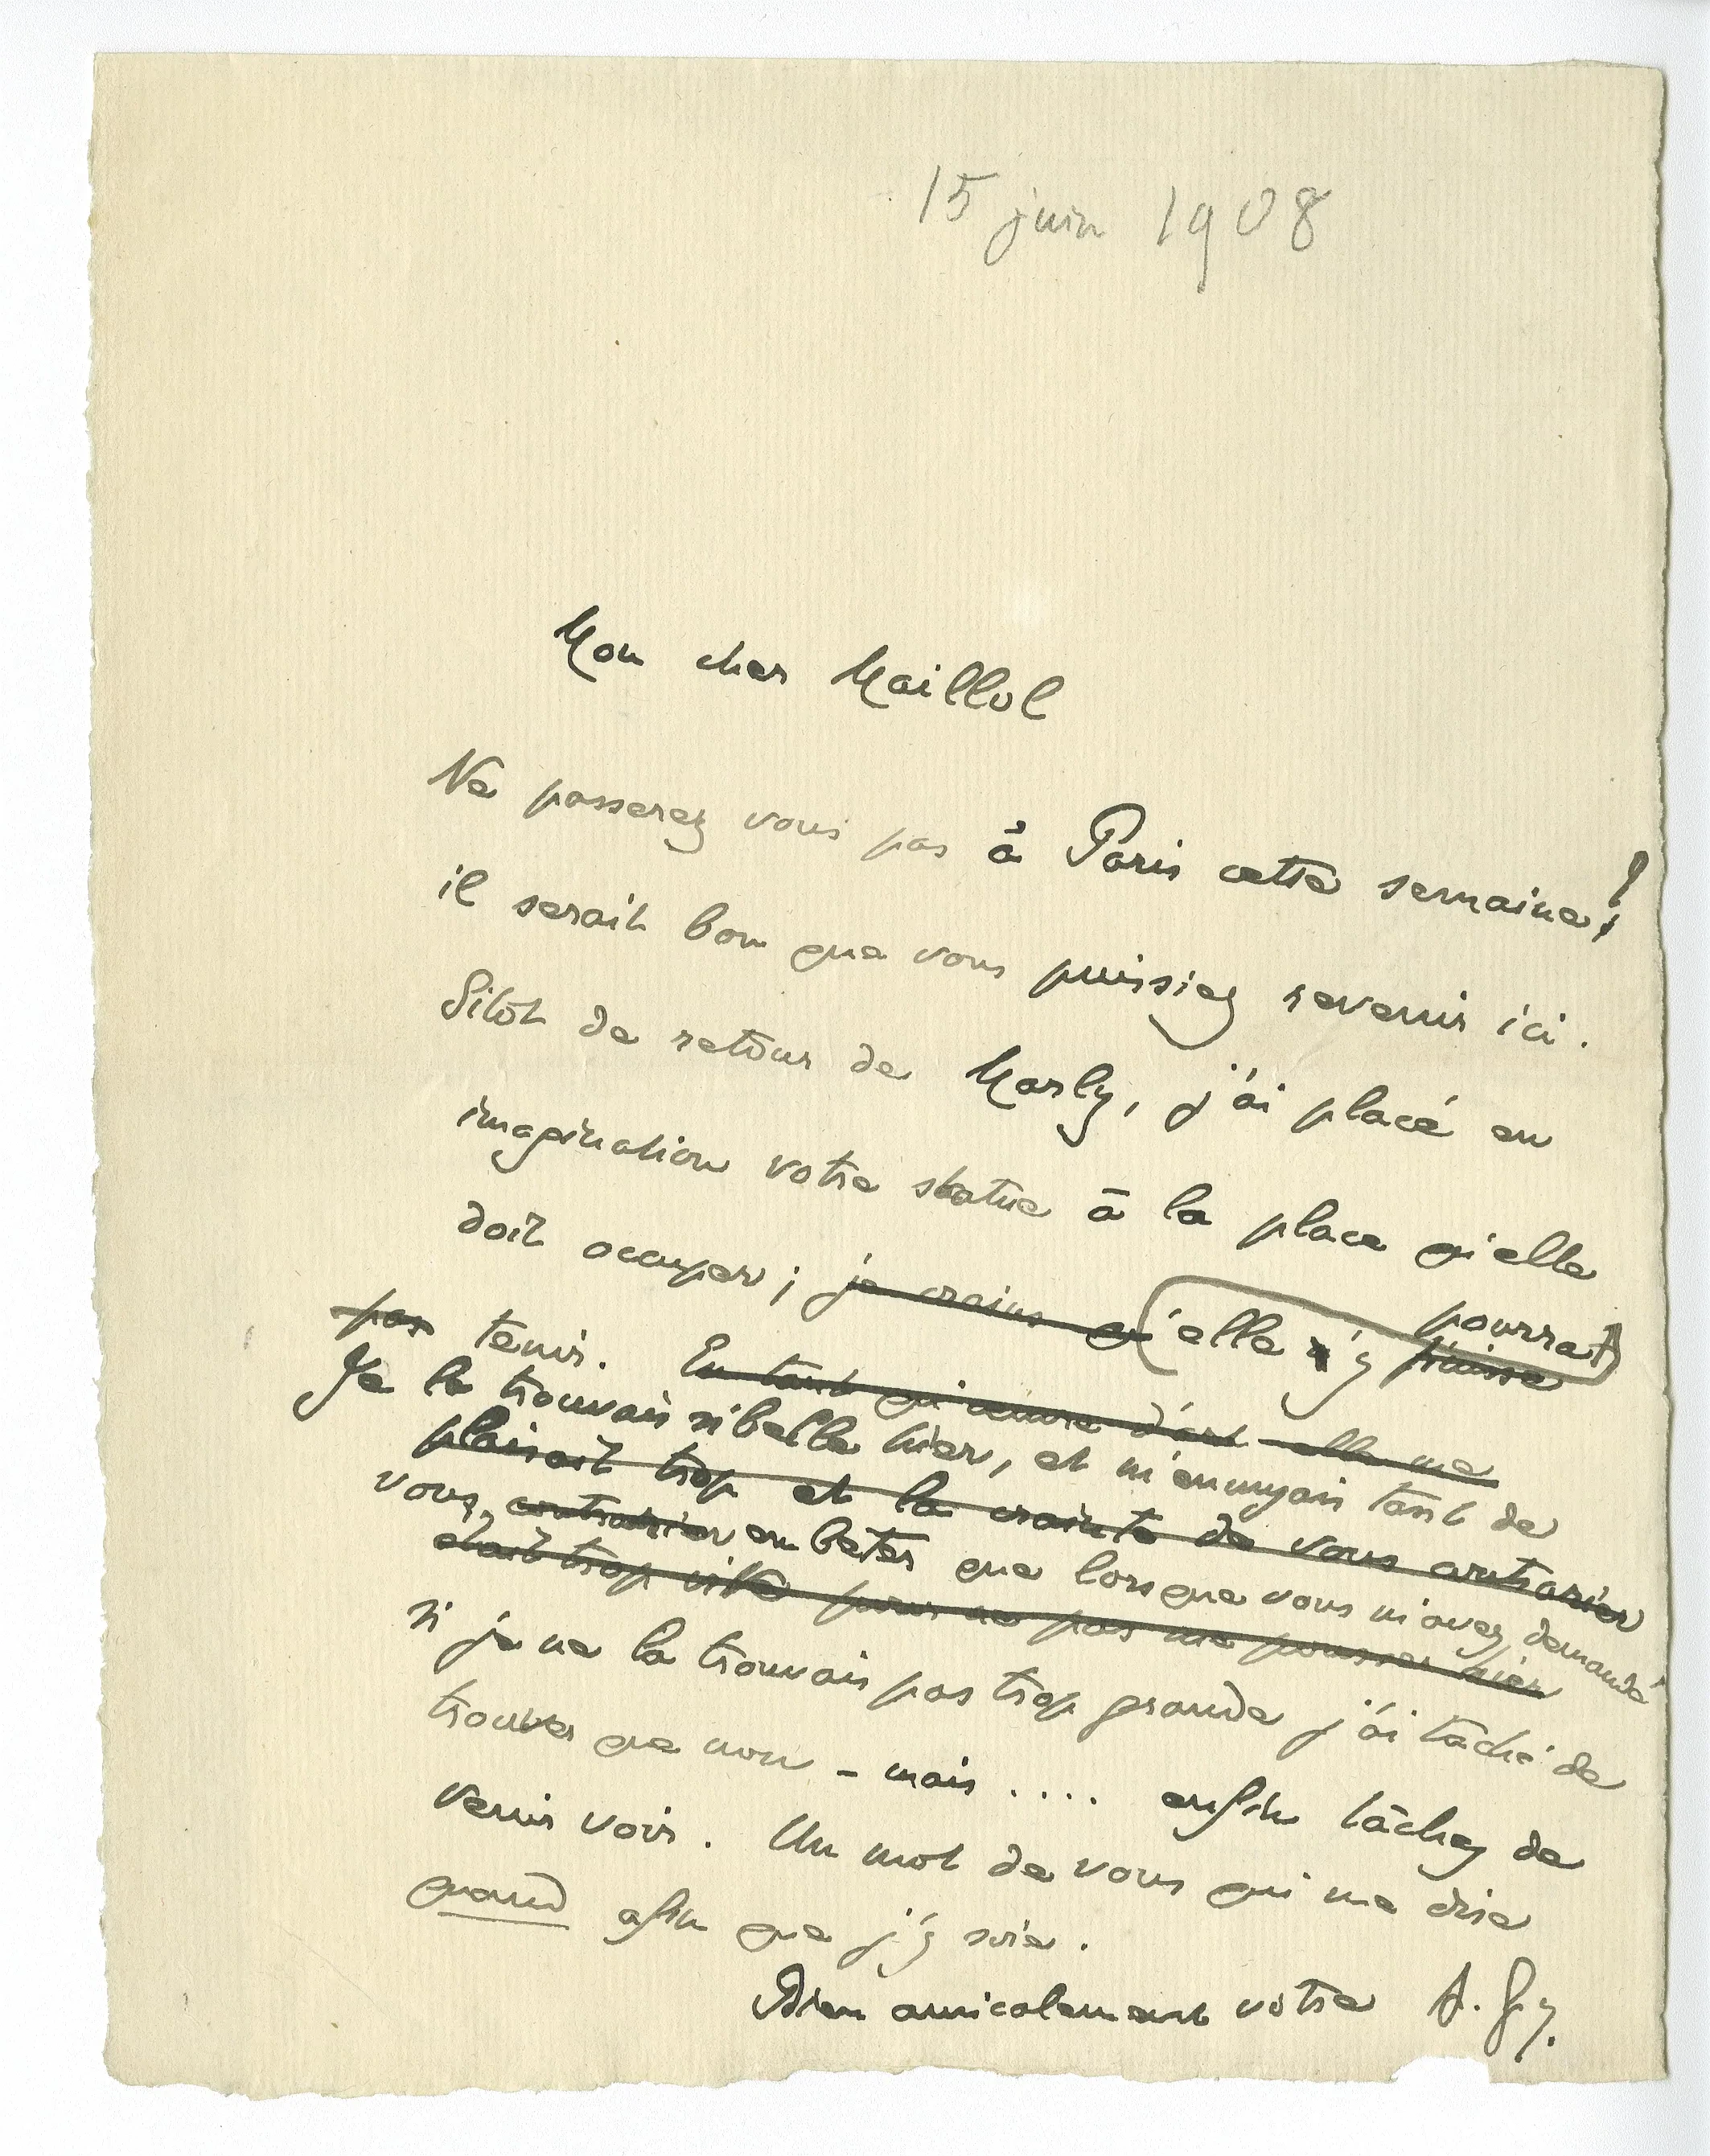 15 juin 1908
Mon cher Maillol
Ne passerez vous pas à Paris cette semaine?
il serait bon que vous puissiez revenir ici.
Sitôt de retour de Marly, j'ai placé en
imagination votre statue à la place qu'elle
doit occuper; je crains qu'elle n'y puisse
pourrait
pas tenir. En tant qu'œuvre d'art elle me
Je la trouvais si belle hier, et m'ennuyais tant de
plaisait trop et la crainte de vous contrarier
vous contrarier embêter que lorsque vous m'avez demandé
était trop vive pour ne pas me pousser hier
si je ne la trouvais pas trop grande j'ai tâché de
trouver que non - mais .... enfin tâchez de
venir voir. Un mot de vous qui me dise
quand afin que j'y sois.
Bien amicalement votre A. G.